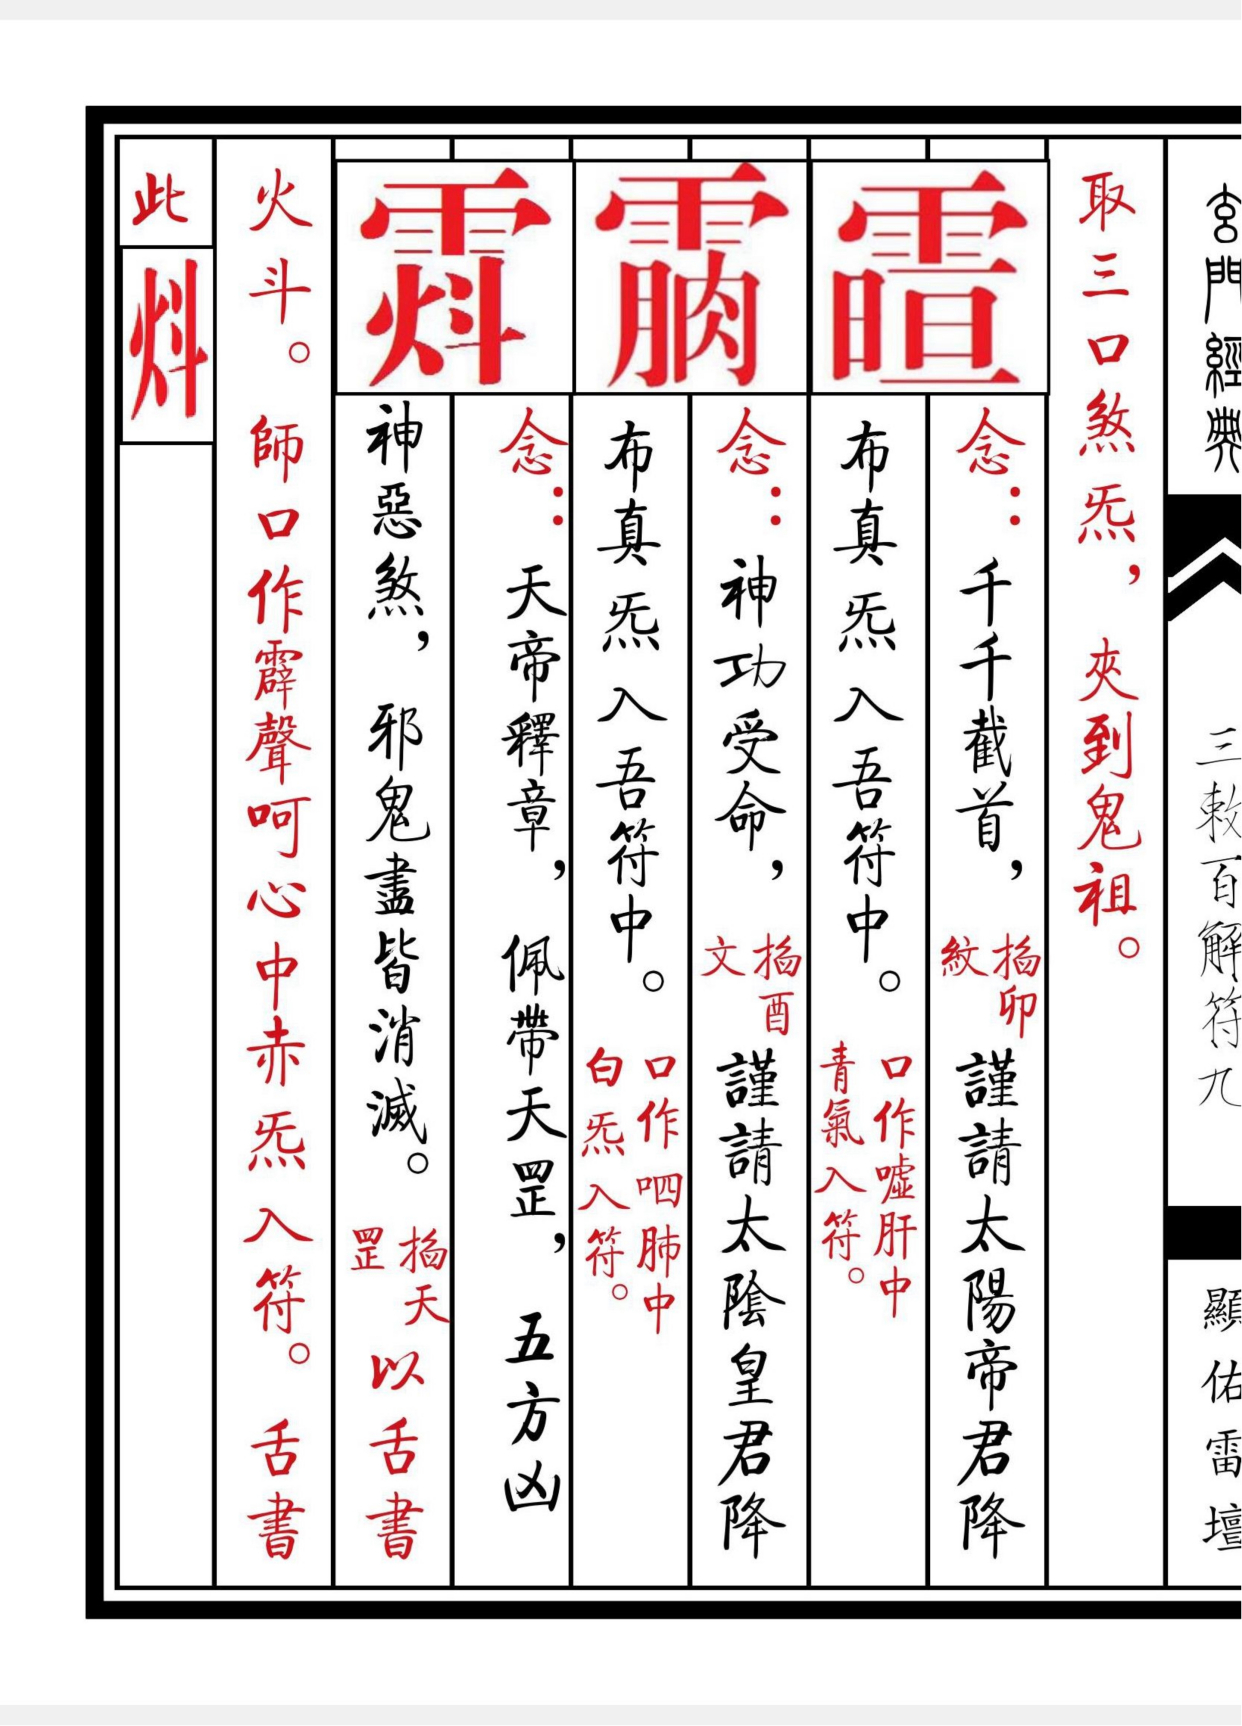 玄門經典 三敕百解符九 顯佑雷壇
取三口煞炁,夾到鬼祖。
念:千千截首,掐卯紋謹請太陽帝君降
布真炁入吾符中。口作噓肝中青氣入符。
念:神功受命,掐酉文謹請太陰皇君降
布真炁入吾符中。口作呬肺中白炁入符。
念:天帝釋章,佩帶天罡,五方凶
神惡煞,邪鬼盡皆消滅。掐天罡以舌書
火斗。師口作霹聲呵心中赤炁入符。舌書
此炓